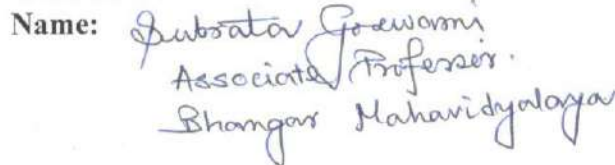 Name: Subrata Goswami
Associate Professor.
Bhangar Mahavidyalaya